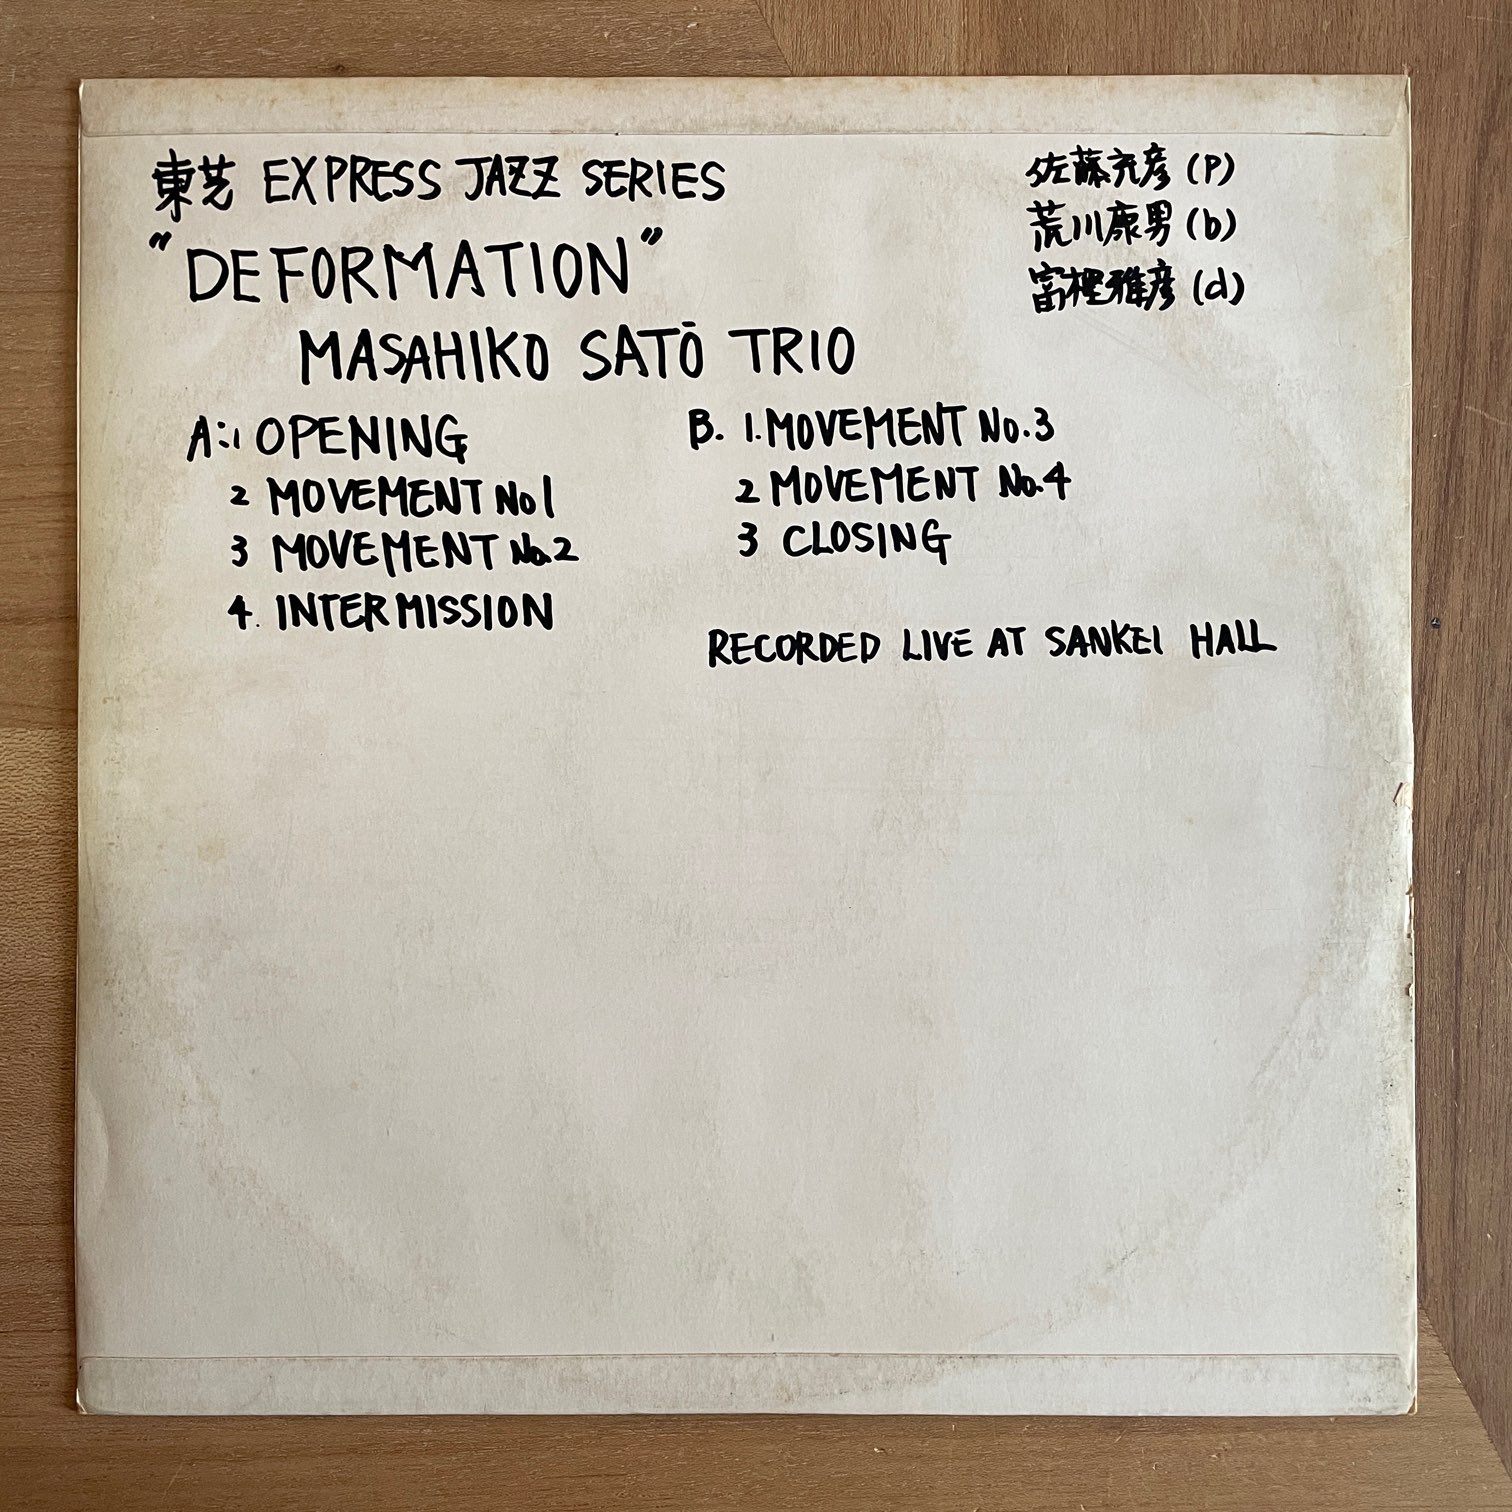 東芝 EXPRESS JAZZ SERIES
"DEFORMATION"
MASAHIKO SATŌ TRIO
佐藤充彦 (P)
荒川康男 (b)
富樫雅彦 (d)
A:1 OPENING
2 MOVEMENT No1
3 MOVEMENT No.2
4. INTERMISSION
B. 1. MOVEMENT No.3
2 MOVEMENT No.4
3 CLOSING
RECORDED LIVE AT SANKEI HALL